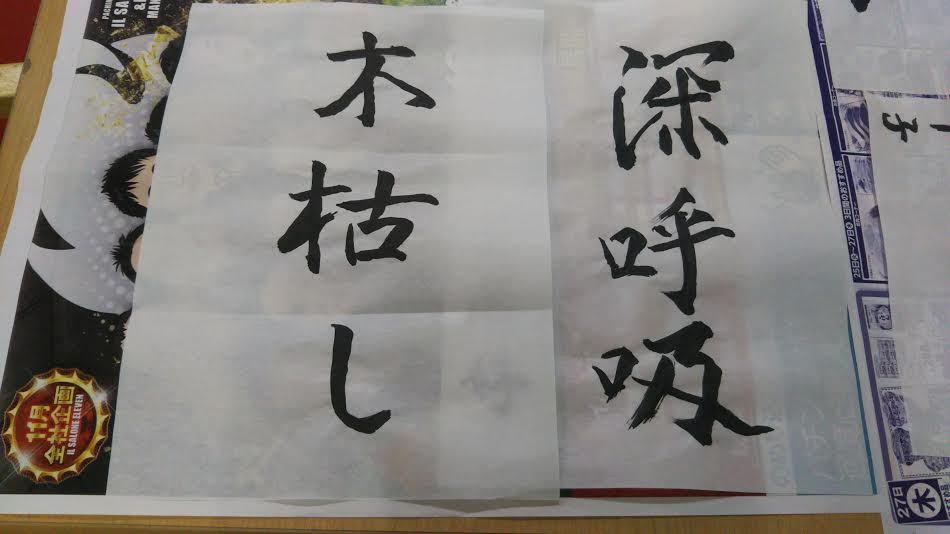 深呼吸
木枯し
子
PACHIN
IL SA
&
MAN
11月
全社企画
IL SALONE ELEVEN
25日㊎～27日㊐ 3日間のおすすめ品
27日
木